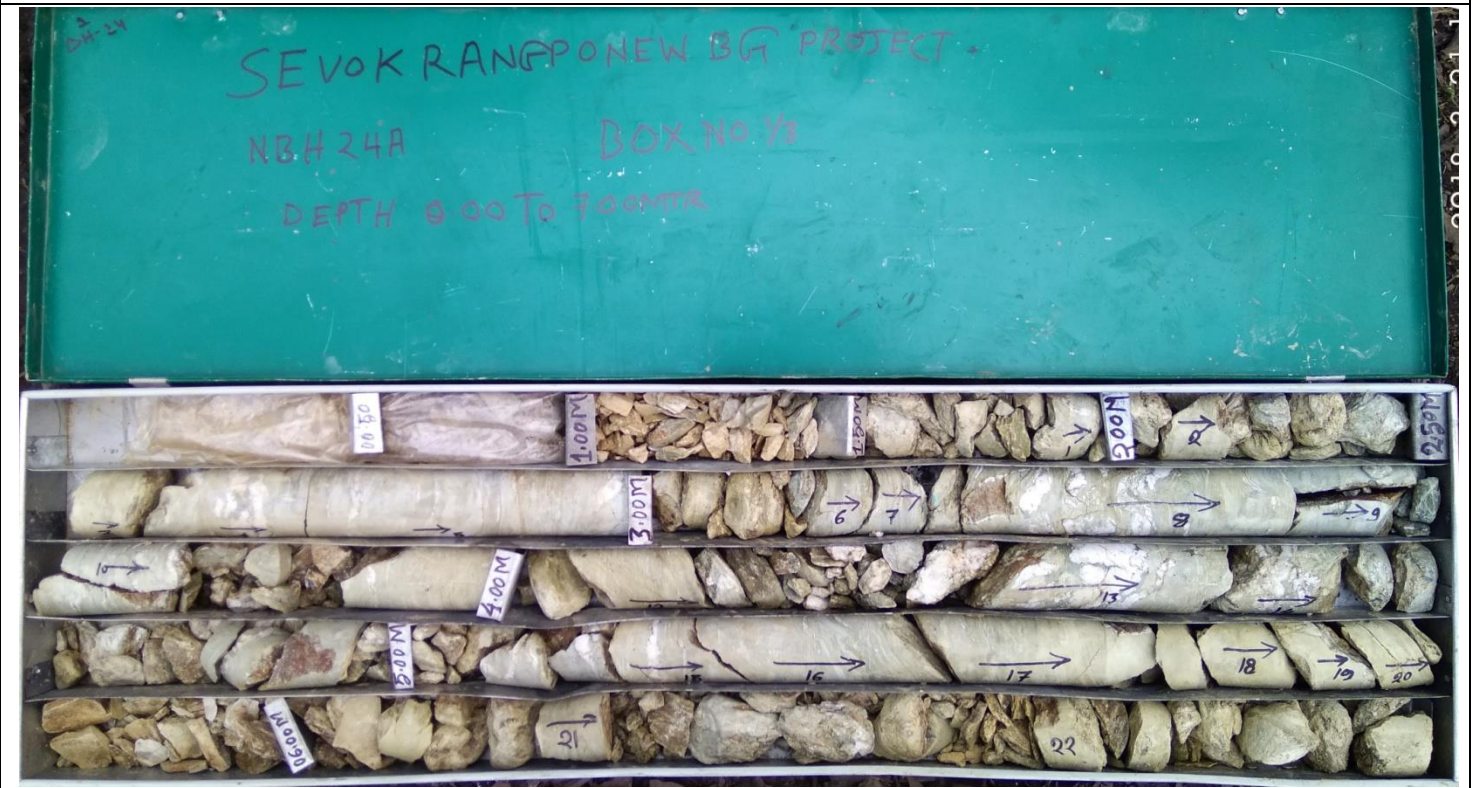 BH-24
SEVOK RANGPO NEW BG PROJECT.
NBH 24A BOX NO 1/3
DEPTH 0.00 TO 7.00MTR
00.50 1.00M 1.50M 1 2.00M 2 2.50M
3.00M 6 7 8 9
10 4.00M 13
5.00M 15 16 17 18 19 20
06.00M 21 22